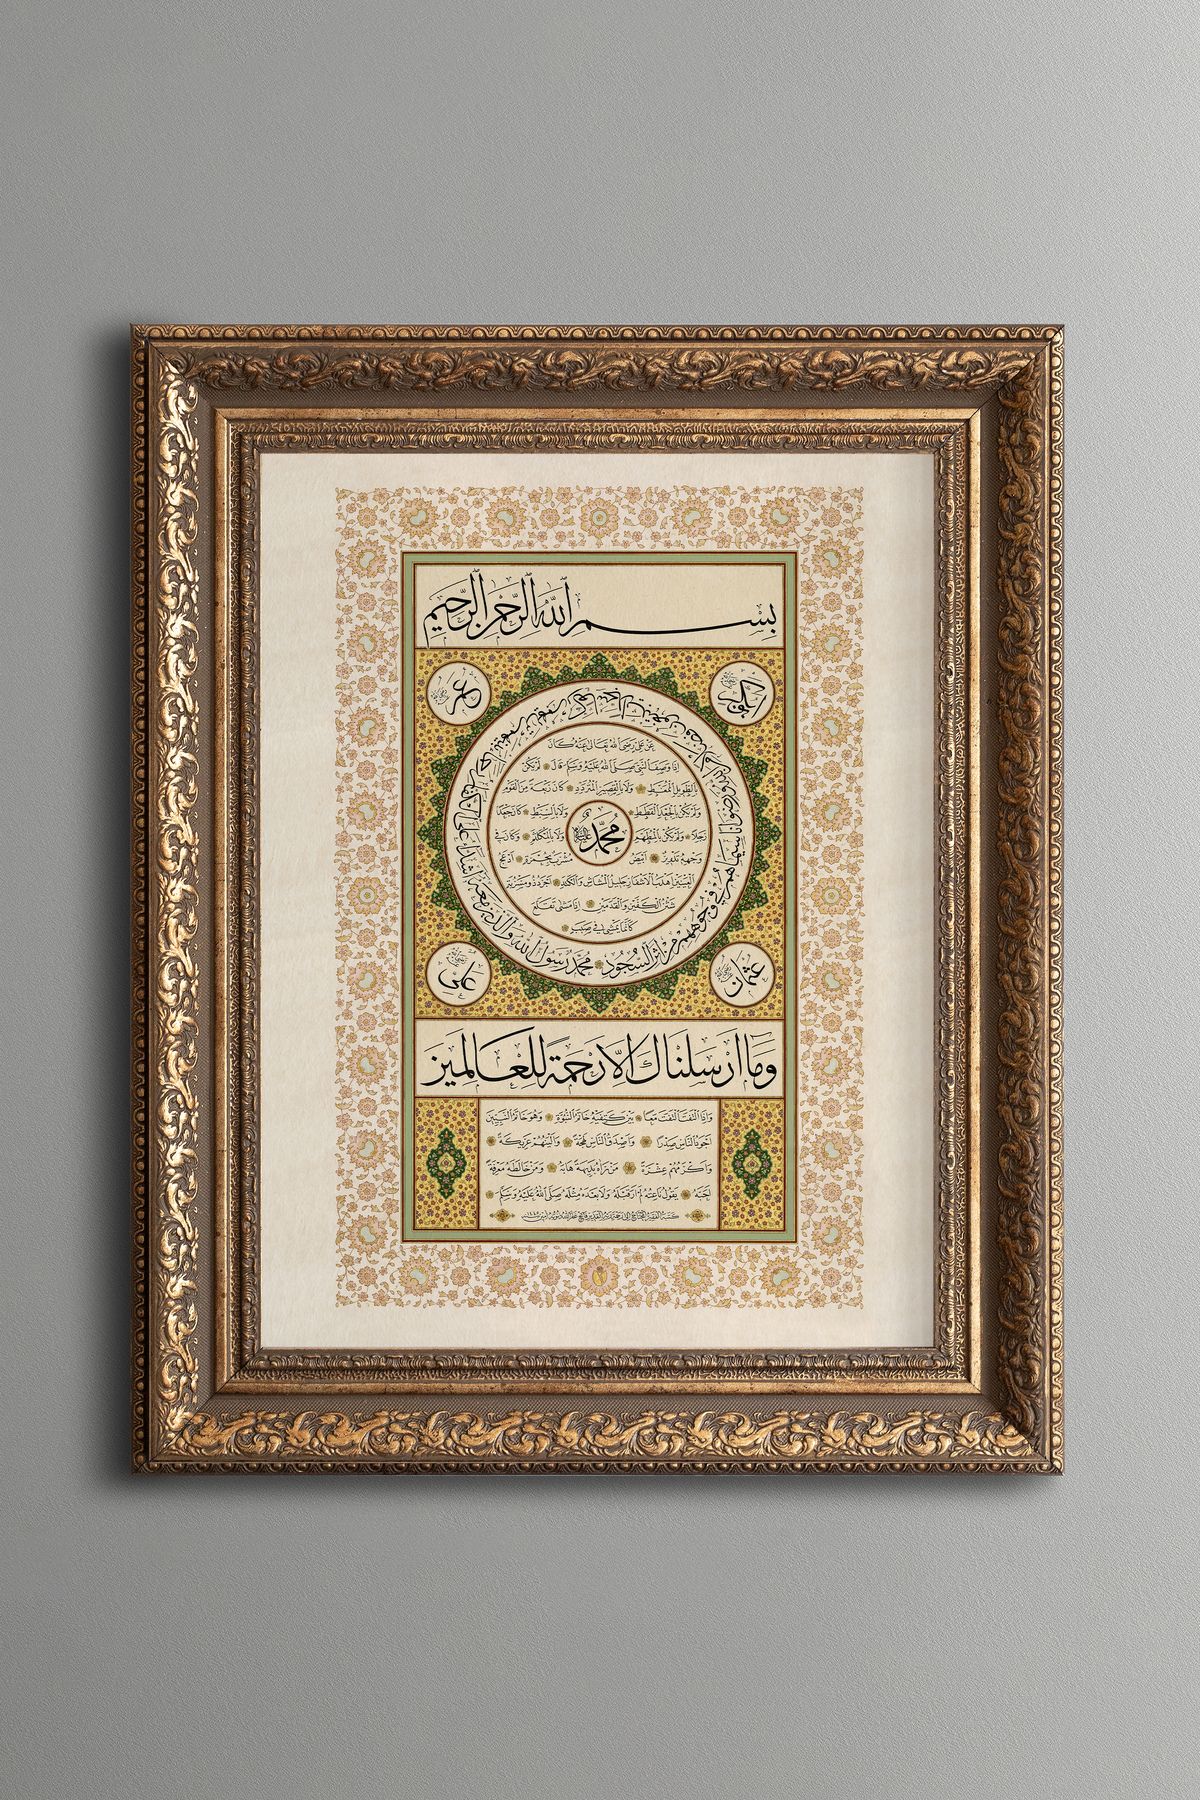 بسم الله الرحمن الرحيم
ابو بكر
عمر
عن علي رضي الله تعالى عنه كان
اذا وصف النبي صلى الله عليه وسلم قال لم يكن
بالطويل الممغط ولا بالقصير المتردد كان ربعة من القوم
ولم يكن بالجعد القطط ولا بالسبط كان جعدا
رجلا ولم يكن بالمطهم ولا بالمكلثم وكان في
محمد
وجهه تدوير ابيض مشرب بحمرة ادعج
العينين اهدب الاشفار جليل المشاش والكتد اجرد ذو مسربة
شثن الكفين والقدمين اذا مشى تقلع
كانما يمشي في صبب
محمد رسول الله والذين معه اشداء على الكفار رحماء بينهم تريهم ركعا سجدا يبتغون فضلا من الله ورضوانا سيماهم في وجوههم من اثر السجود
عثمان
علي
وما ارسلناك الا رحمة للعالمين
واذا التفت التفت معا بين كتفيه خاتم النبوة وهو خاتم النبيين
اجود الناس صدرا واصدق الناس لهجة والينهم عريكة
واكرمهم عشرة من رآه بديهة هابه ومن خالطه معرفة
احبه يقول ناعته لم ار قبله ولا بعده مثله صلى الله عليه وسلم